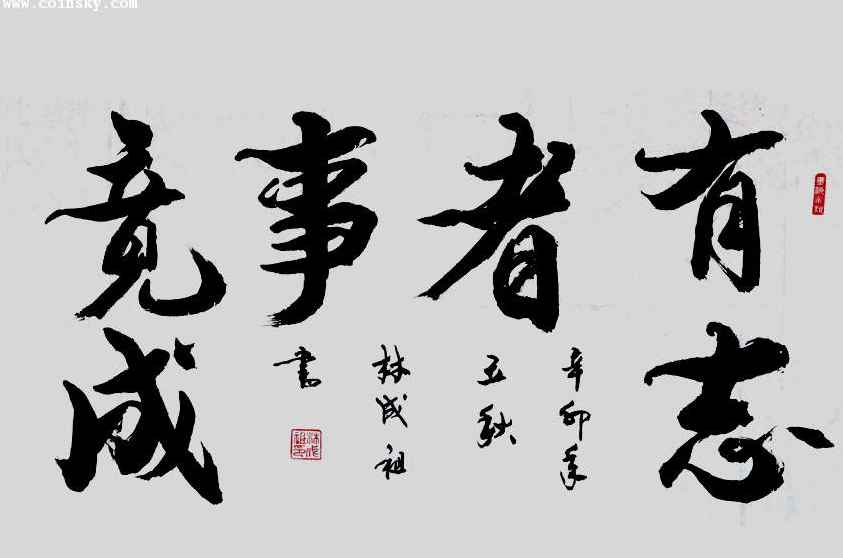 www.coinsky.com
有志
者
事
竟成
辛卯年
五秋
林成祖
書